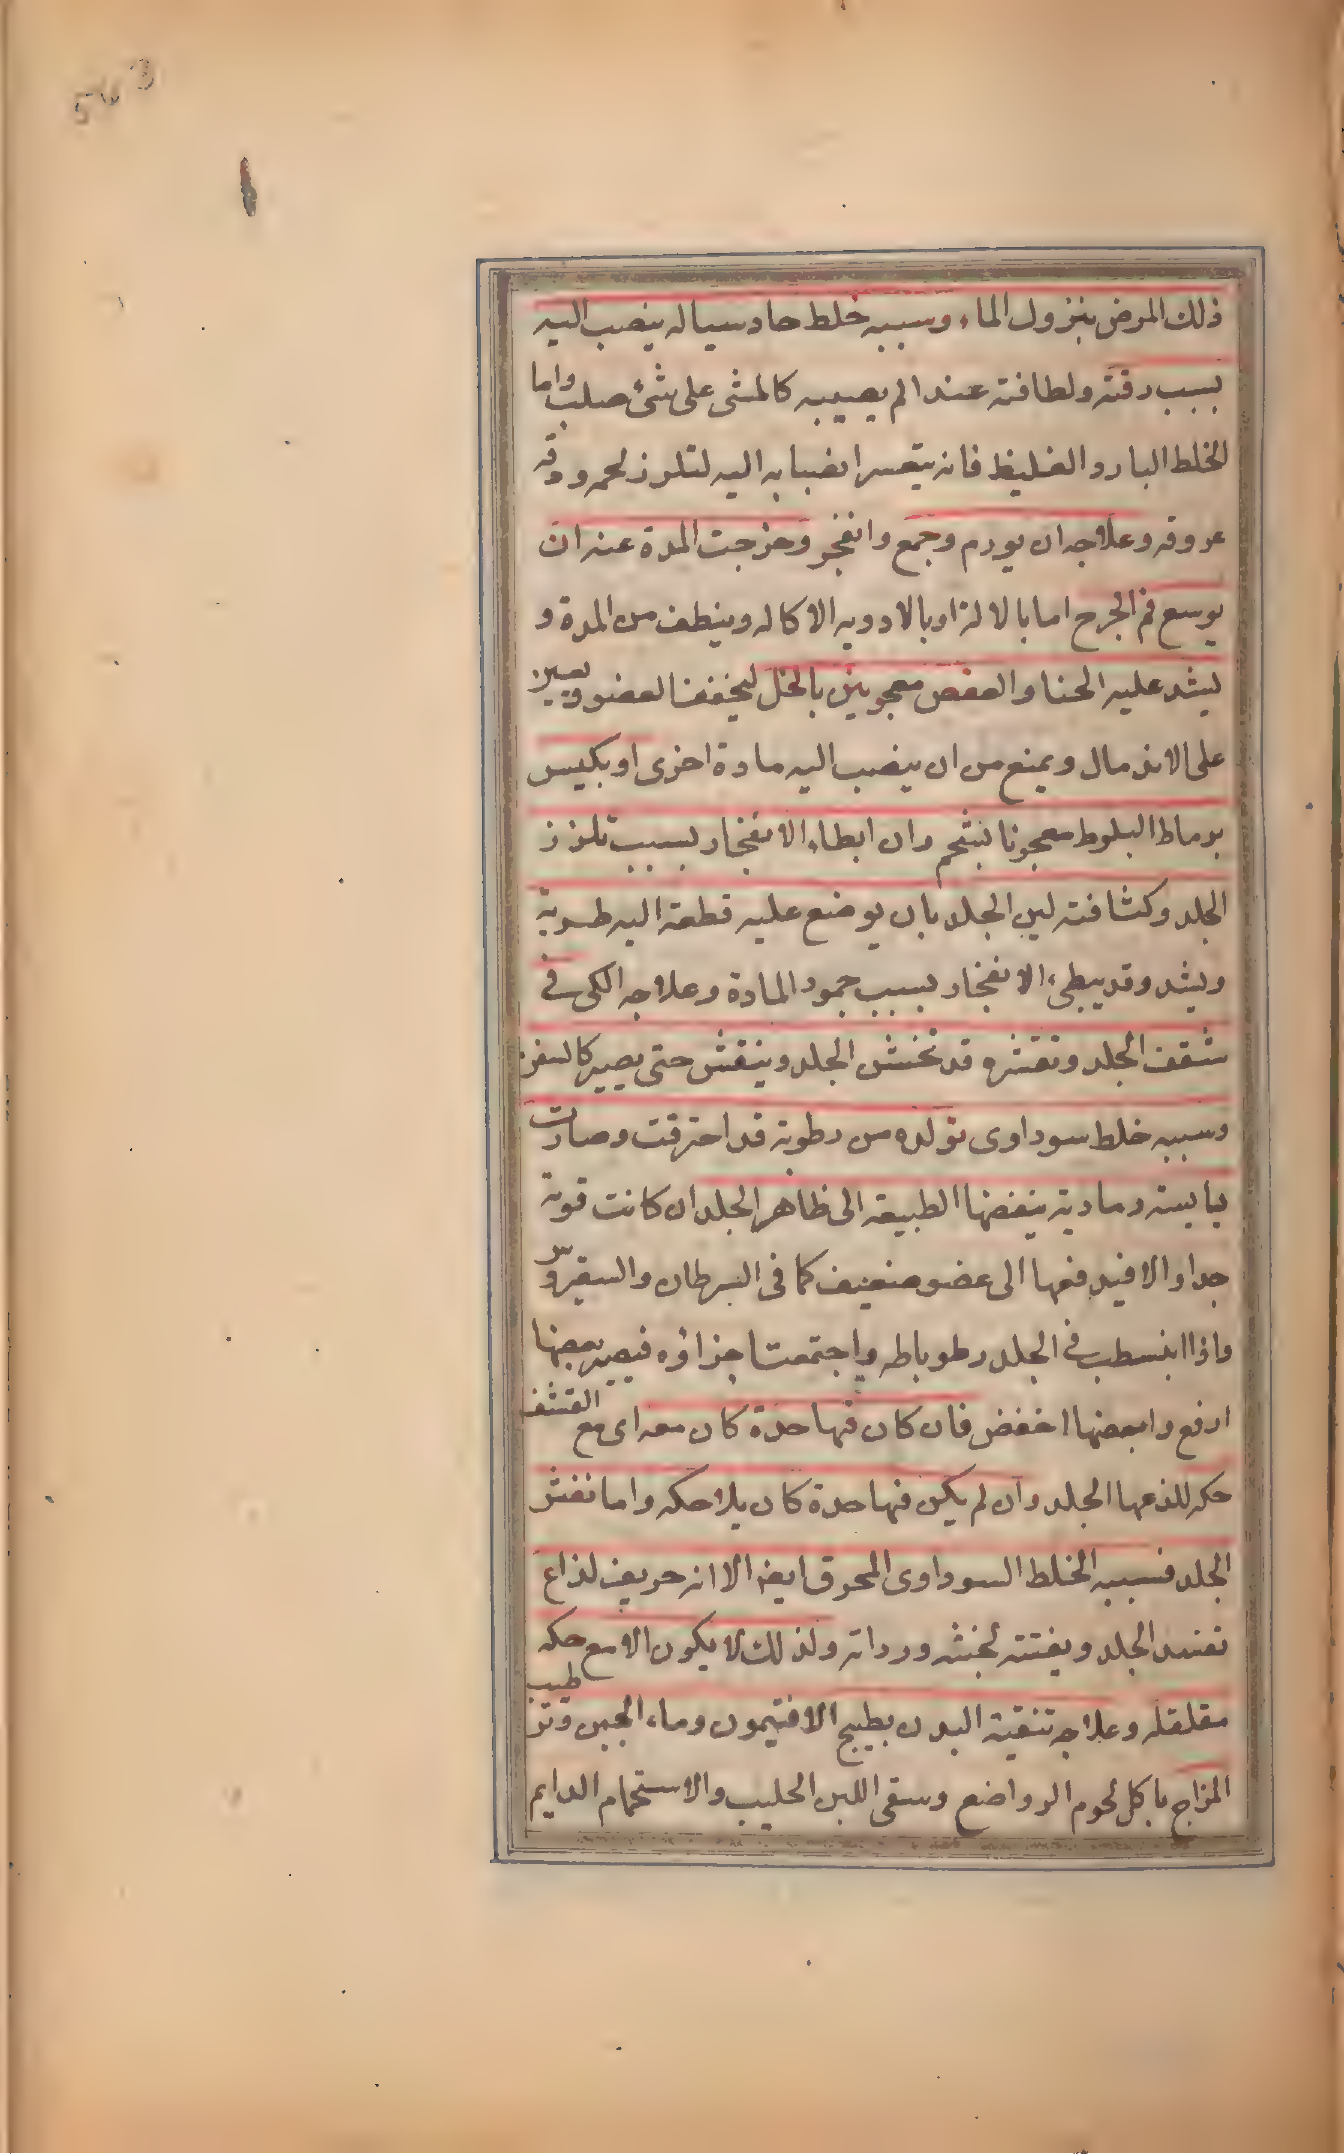 543
ذلك المرض بنزول الماء وسببه خلط حاد سياله ينصب اليه
بسبب رقته ولطافته عند الم يصيبه كالمشى على شئ صلب واما
الخلط البارد الغليظ فانه يتعسر انصبابه اليه لتلزز لحمه ودقه
عروقه وعلاجه ان يورم وجمع وانفجر وخرجت المدة عنه ان
يوسع فم الجرح اما بالالة او بالادويه الاكاله وينظف من المدة و
يشد عليه الحنا والعفص معجونين بالخل ليخففنا لعضو ويعين
على الاندمال ويمنع من ان ينصب اليه مادة اخرى او بكيس
برماط البلوط معجونا بشحم وان ابطاء الانفجار بسبب تلزز
الجلد وكثافته لين الجلد بان يوضع عليه قطعة اليه طريه
ويشد وقد يبطئ الانفجار بسبب جمود المادة وعلاجه الكى فى
شقف الجلد وتقشره قد تخشن الجلد وينقش حتى يصير كالسفن
وسببه خلط سوداوى تولده من رطوبة قد احترقت وصارت
يابسة رمادية ينفضها الطبيعة الى ظاهر الجلد ان كانت قوية
جدا والا فيدفعها الى عضو ضعيف كما فى السرطان والسقيروس
واذا انبسطب فى الجلد رطوباطه واجتمعت اجزاؤه فيصير بعضها
ارفع وابعضها اخفض فان كان فيها حدة كان معه اى مع القشف
حكه للذعها الجلد وان لم يكن فيها حدة كان بلا حكه واما تقشر
الجلد فسببه الخلط السوداوى المحرق ايضا الا انه حريف لذاع
تفسد الجلد ويفتته لخبثه ورداته ولذلك لا يكون الا مع حكه
مقلقله وعلاجه تنقية البدن بطبيخ الافتيمون وماء الجبن وترطيب
المزاج باكل لحوم الرواضع وسقى اللبن الحليب والاستحمام الدايم